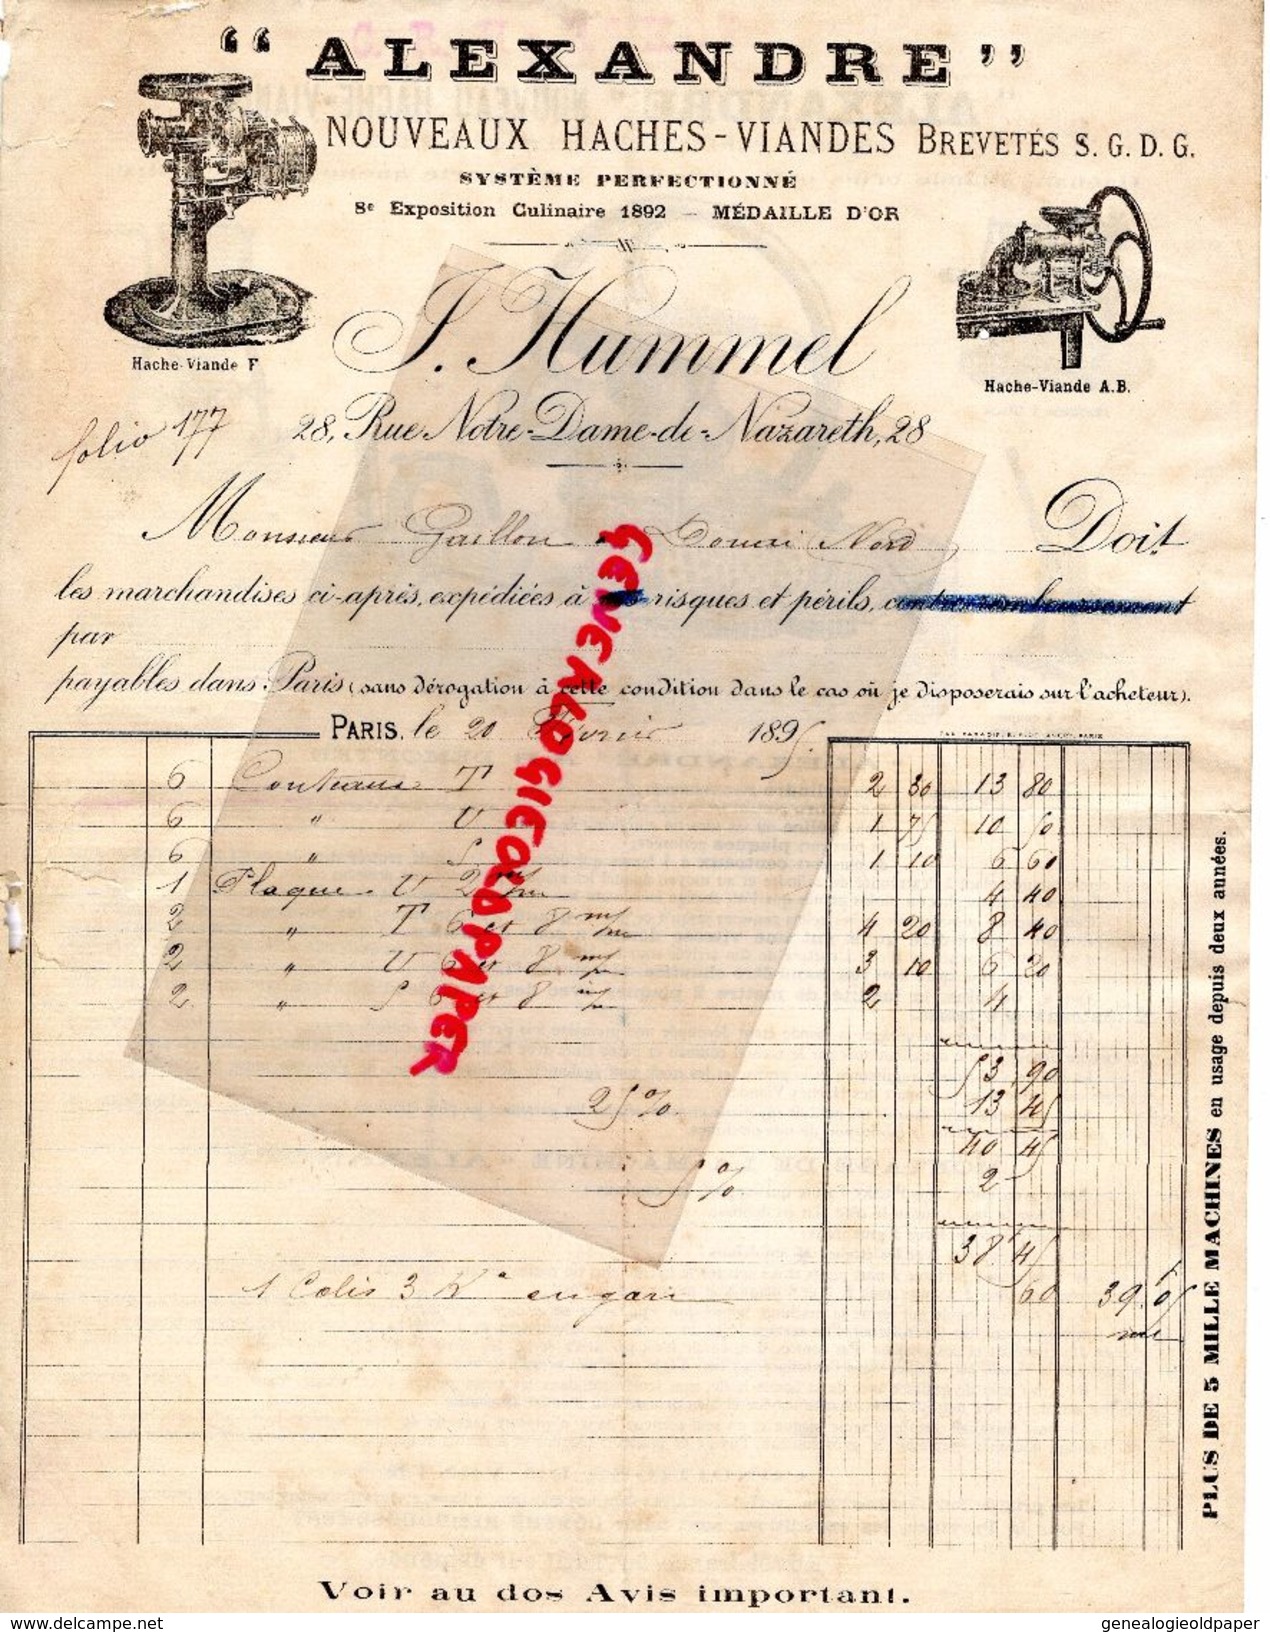 “ ALEXANDRE ”
NOUVEAUX HACHES-VIANDES BREVETÉS S. G. D. G.
SYSTÈME PERFECTIONNÉ
8e Exposition Culinaire 1892 — MÉDAILLE D'OR
J. Hummel
Hache-Viande F
Hache-Viande A.B.
folio 177
28, Rue Notre-Dame-de-Nazareth, 28
Monsieur Gaillon à Douai (Nord) Doit
les marchandises ci-après, expédiées à risques et périls, contre remboursement
par
payables dans Paris (sans dérogation à cette condition dans le cas où je disposerais sur l'acheteur).
PARIS, le 20 Février 1895
6 Couteaux T 2 30 13 80
6 " U 1 75 10 50
6 " S 1 10 6 60
1 Plaque U 2 m/m 4 40
2 " T 6 et 8 m/m 4 20 8 40
2 " U 6 et 8 m/m 3 10 6 20
2 " S 6 et 8 m/m 2 4
53 90
25 % 13 45
40 45
5 % 2 -
38 45
1 Colis 3 Ko en gare 60 39 05
PLUS DE 5 MILLE MACHINES en usage depuis deux années.
Voir au dos Avis important.
GENEALOGIEOLDPAPER
www.delcampe.net
genealogieoldpaper